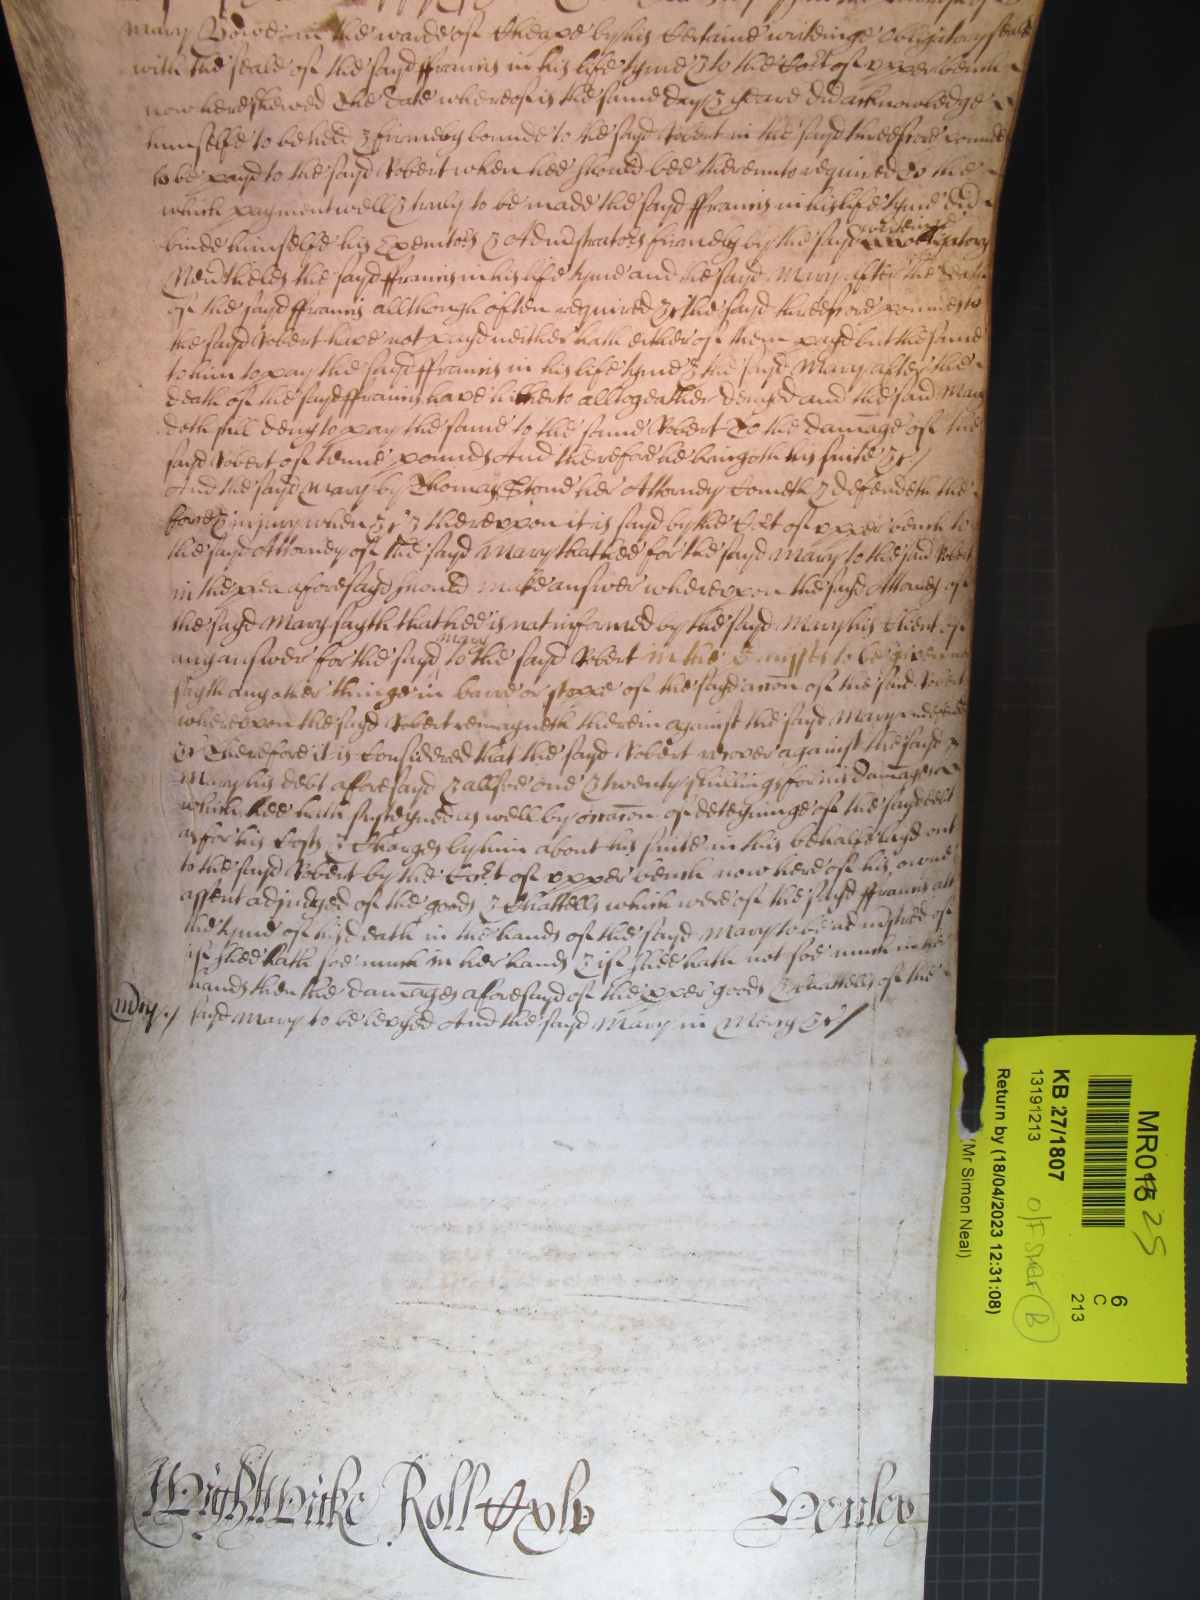 Mary Bowe in the warde of Cheape by his Certaine writeinge Obligatory seald
with the seale of the sayd ffrancis in his life tyme & to the Co:rt of upper bench
now here shewed the date whereof is the same day & yeare did acknowledge
himselfe to be held & firmely bounde to the sayd Robert in the sayd threescore pounde
to be payd to the sayd Robert when hee should bee thereunto required To the
which payment well & truly to be made the sayd ffrancis in his life tyme did
binde himselfe his Executo:rs & Administrato:rs firmely by the sayd writeinge obligatory
Neverthieles the sayd ffrancis in his life tyme and the sayd Mary after the death
of the sayd ffrancis allthough often required &c the said threescore poundes to
the sayd Robert have not payd neither hath either of them payd but the same
to him to pay the sayd ffrancis in his life tyme & the sayd Mary after the
death of the sayd ffrancis have hitherto alltogeather denyed and the said Mary
doth still deny to pay the same to the same Robert To the damage of the
sayd Robert of tenne pounds And therefore he bringeth his suite &c /
And the sayd Mary by Thomas Stone her Attorney Cometh & defendeth the
force & injury when &c & thereupon it is sayd by the Co:rt of upper bench to
the sayd Attorney of the sayd Mary that hee for the sayd Mary to the said Robert
in the plea aforesayd should make answer whereupon the sayd Attorney of
the sayd Mary sayth that hee is not informed by the sayd Mary his Client of
any answer for the sayd Mary to the sayd Robert in the p:rmisses to be given
sayth any other thinge in barre or stoppe of the sayd accon of the said Robert
whereupon the sayd Robert remayneth therein against the sayd Mary undefended
&c Therefore it is Considered that the sayd Robert recover against the sayd
Mary his debt aforesayd & allsoe one & twenty shillings for his damages
which hee hath susteyned as well by occasion of deteyninge of the sayd debt
as for his Costs & Charges by him about his suite in this behalfe layd out
to the sayd Robert by the Co:rt of upper bench now here of his owne
assent adjudged of the goods & Chattells which were of the sayd ffrancis att
the tyme of his death in the hands of the sayd Mary to be administred if
if shee hath soe much in her hands & if shee hath not soe much in her
hands then the damages aforesayd of the p:per goods & Chattells of the
mercy / sayd Mary to be levyed And the sayd Mary in Mercy &c /
WightWicke Roll xlv Henley
MR015 25
KB 27/1807
13191213
O/F SMAP B
6
C
213
Return by (18/04/2023 12:31:08)
(Mr Simon Neal)